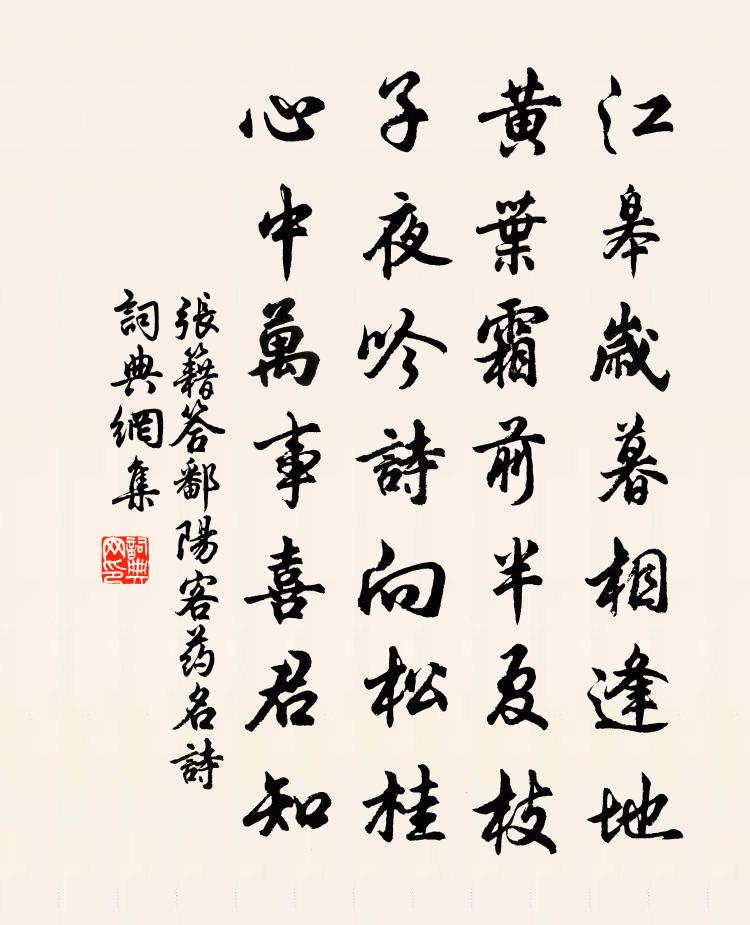 江皋歲暮相逢地
黃葉霜前半夏枝
子夜吟詩向松桂
心中萬事喜君知
張籍答鄱陽客药名詩
詞典網集
詞典网印